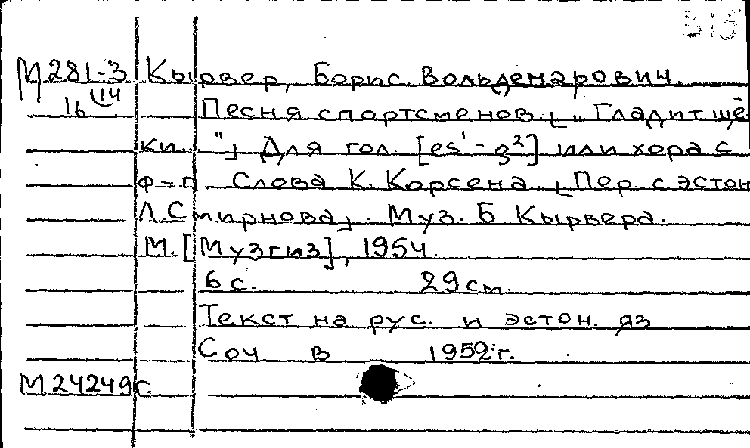 М281-3 Кырвер, Борис Вольдемарович.
16 114 Песня спортсменов. „Гладит щё
ки..." Для гол. [es¹-g²] или хора с
ф-п. Слова К. Корсена. Пер. с эстон
Л. Смирнова. Муз. Б. Кырвера.
М. [Музгиз], 1954.
6 с. 29 см
Текст на рус. и эстон. яз
Соч в 1952 г.
М24249с